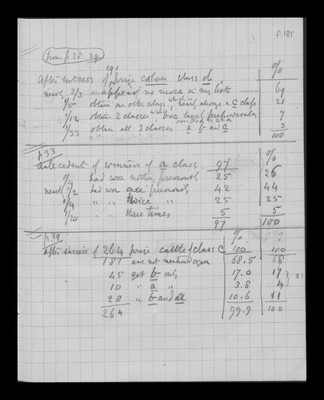 p.185
from p.28. 29
191
After success of prize calves class ol, %
nearly 2/3 appear no more in my lists 69
1/5 obtain one other class, nearly always a C class 21
1/12 obtain 2 classes, 7
1/33 obtain all 3 classes a b and c 3
100
p.33 %
Antecedent of winners of a class 97
had won nothing previously 25 26
nearly 1/2 had won once previously 42 44
1/4 " " twice " 25 25
1/20 " " three times 5 5
97 100
p.29 %
After success of 264 prize cattle of class C 100 100
181 are not mentioned again 68.5 68
45 get b only 17.0 17
10 " a " 3.8 4
28 " b and a 10.6 11
264 99.9 100